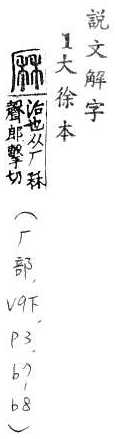 說文解字
1大徐本
厤
治也从厂秝
聲郎擊切
（厂部，V9下，P3，b7，b8）